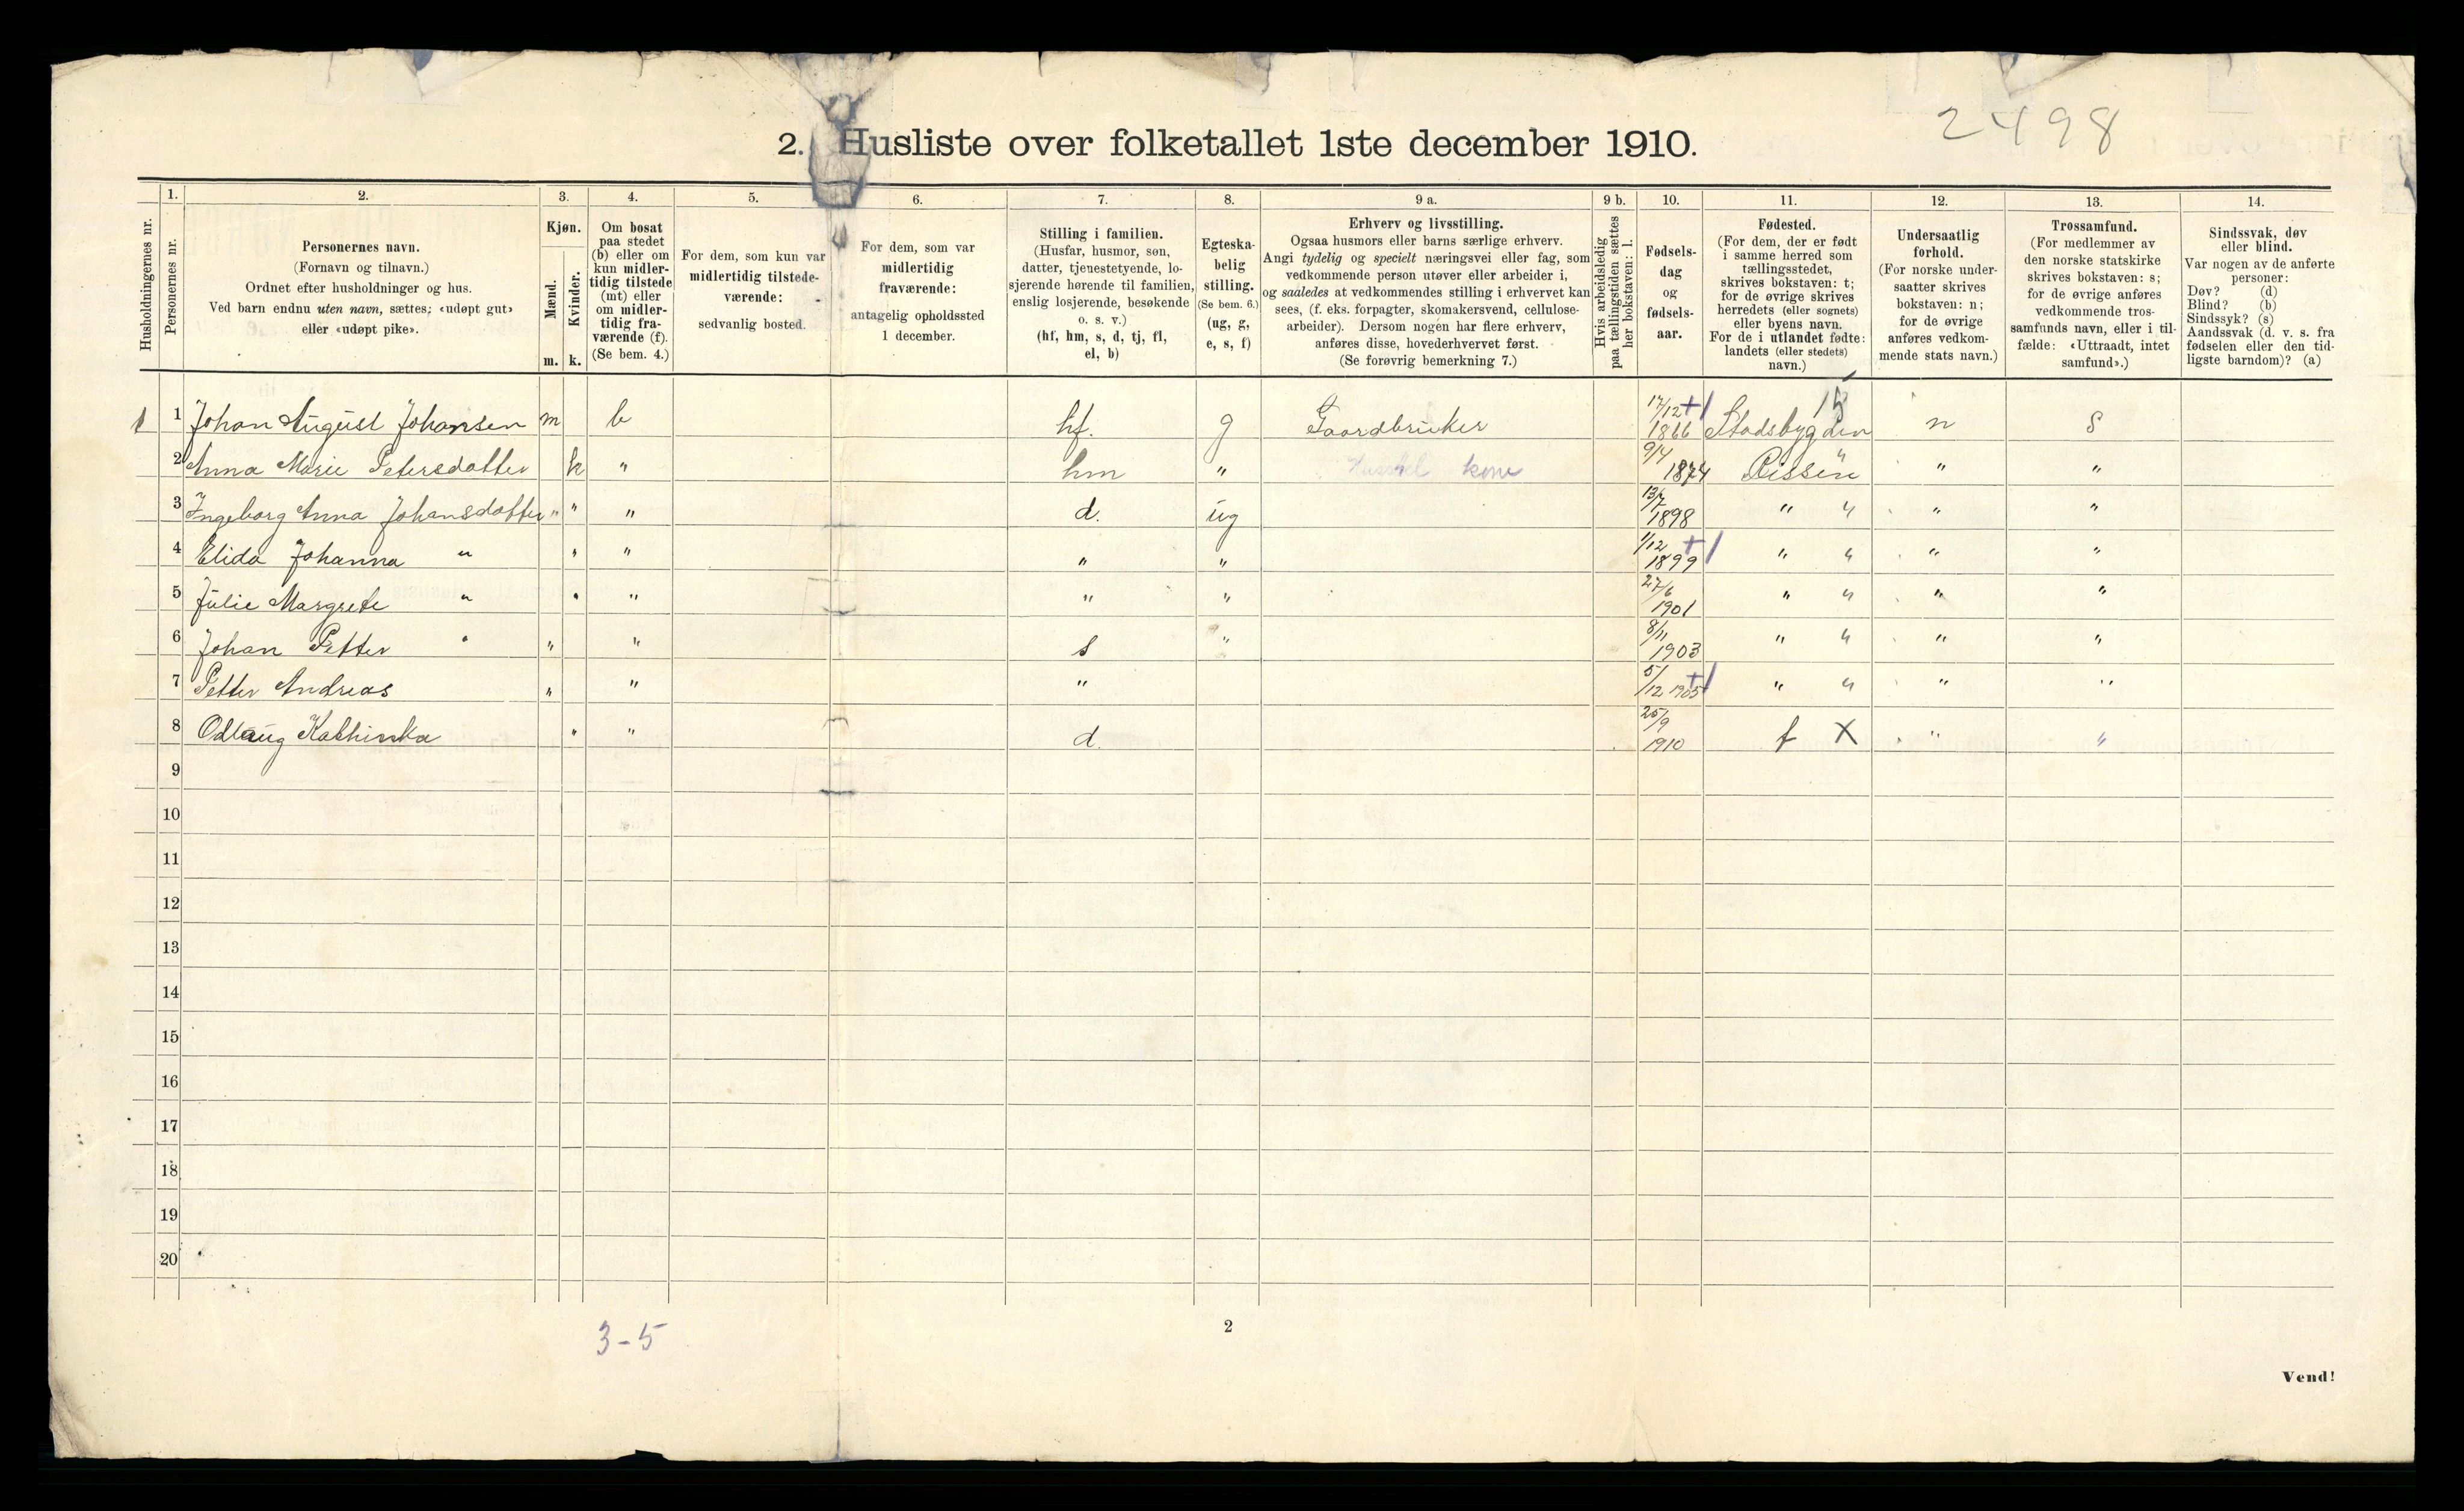 2498
2. Husliste over folketallet 1ste december 1910.
Husholdningernes nr.
1.
Personernes nr.
2.
Personernes navn.
(Fornavn og tilnavn.)
Ordnet efter husholdninger og hus.
Ved barn endnu uten navn, sættes: «udøpt gut»
eller «udøpt pike».
3.
Kjøn.
Mænd.
Kvinder.
m. k.
4.
Om bosat
paa stedet
(b) eller om
kun midler-
tidig tilstede
(mt) eller
om midler-
tidig fra-
værende (f).
(Se bem. 4.)
5.
For dem, som kun var
midlertidig tilstede-
værende:
sedvanlig bosted.
6.
For dem, som var
midlertidig
fraværende:
antagelig opholdssted
1 december.
7.
Stilling i familien.
(Husfar, husmor, søn,
datter, tjenestetyende, lo-
sjerende hørende til familien,
enslig losjerende, besøkende
o. s. v.)
(hf, hm, s, d, tj, fl,
el, b)
8.
Egteska-
belig
stilling.
(Se bem. 6.)
(ug, g,
e, s, f)
9 a.
Erhverv og livsstilling.
Ogsaa husmors eller barns særlige erhverv.
Angi tydelig og specielt næringsvei eller fag, som
vedkommende person utøver eller arbeider i,
og saaledes at vedkommendes stilling i erhvervet kan
sees, (f. eks. forpagter, skomakersvend, cellulose-
arbeider). Dersom nogen har flere erhverv,
anføres disse, hovederhvervet først.
(Se forøvrig bemerkning 7.)
9 b.
Hvis arbeidsledig
paa tællingstiden sættes
her bokstaven: l.
10.
Fødsels-
dag
og
fødsels-
aar.
11.
Fødested.
(For dem, der er født
i samme herred som
tællingsstedet,
skrives bokstaven: t;
for de øvrige skrives
herredets (eller sognets)
eller byens navn.
For de i utlandet fødte:
landets (eller stedets)
navn.)
12.
Undersaatlig
forhold.
(For norske under-
saatter skrives
bokstaven: n;
for de øvrige
anføres vedkom-
mende stats navn.)
13.
Trossamfund.
(For medlemmer av
den norske statskirke
skrives bokstaven: s;
for de øvrige anføres
vedkommende tros-
samfunds navn, eller i til-
fælde: «Uttraadt, intet
samfund».)
14.
Sindssvak, døv
eller blind.
Var nogen av de anførte
personer:
Døv? (d)
Blind? (b)
Sindssyk? (s)
Aandssvak (d. v. s. fra
fødselen eller den tid-
ligste barndom)? (a)
1 1 Johan August Johansen m b hf. g Gaardbruker 17/12 1866 Stadsbygden n s
2 Anna Marie Petersdatter k " hm " kone 9/4 1874 Rissen " " "
3 Ingeborg Anna Johansdatter " " " d. ug 13/7 1898 " " " "
4 Elida Johanna " " " " " 1/12 1899 " " " "
5 Julie Margrete " " " " " 27/6 1901 " " " "
6 Johan Petter " " " s " 8/11 1903 " " " "
7 Petter Andreas " " " 5/12 1905 " " " "
8 Odlaug Kathinka " " d. 25/9 1910 t X " "
9
10
11
12
13
14
15
16
17
18
19
20
3-5
2
Vend!